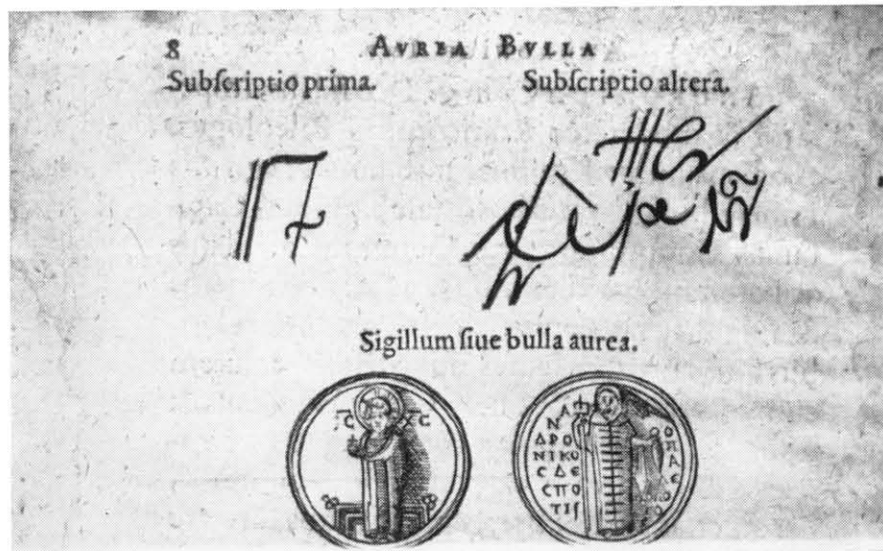 8 AVREA BVLLA
Subſcriptio prima. Subſcriptio altera.
Sigillum ſiue bulla aurea.
IC XC
Α
Ν
ΔΡΟ
ΝΙΚΟ
C ΔΕ
CΠΟ
ΤΙſ
Ο
Π
Α
Ε